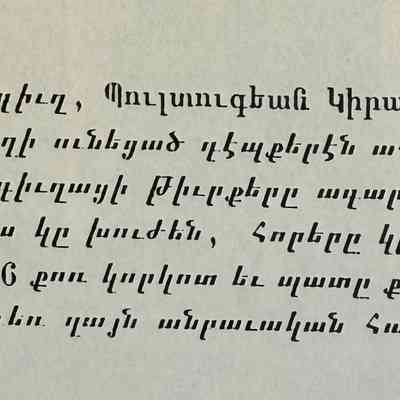 գիւղ, Պուլտուգեան Կիրա
ղի ունեցած դէպքերէն ա
գիւղացի Թիւրքերը աղար
ս կը խուժեն, Հորերը կը
6 քոռ կորկոտ եւ պատը ք
եռ զայն անրաւական Հա